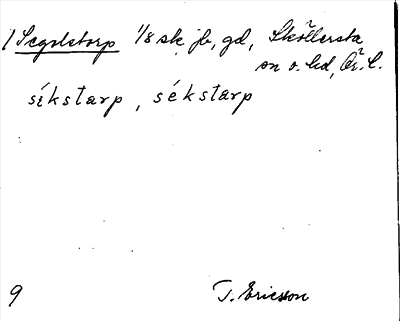 / Segolstorp 1/8 sk. jb, gd, Sköllersta
sn o. hd, Ör. l.
síkstarp, sékstarp
9 T. Ericsson